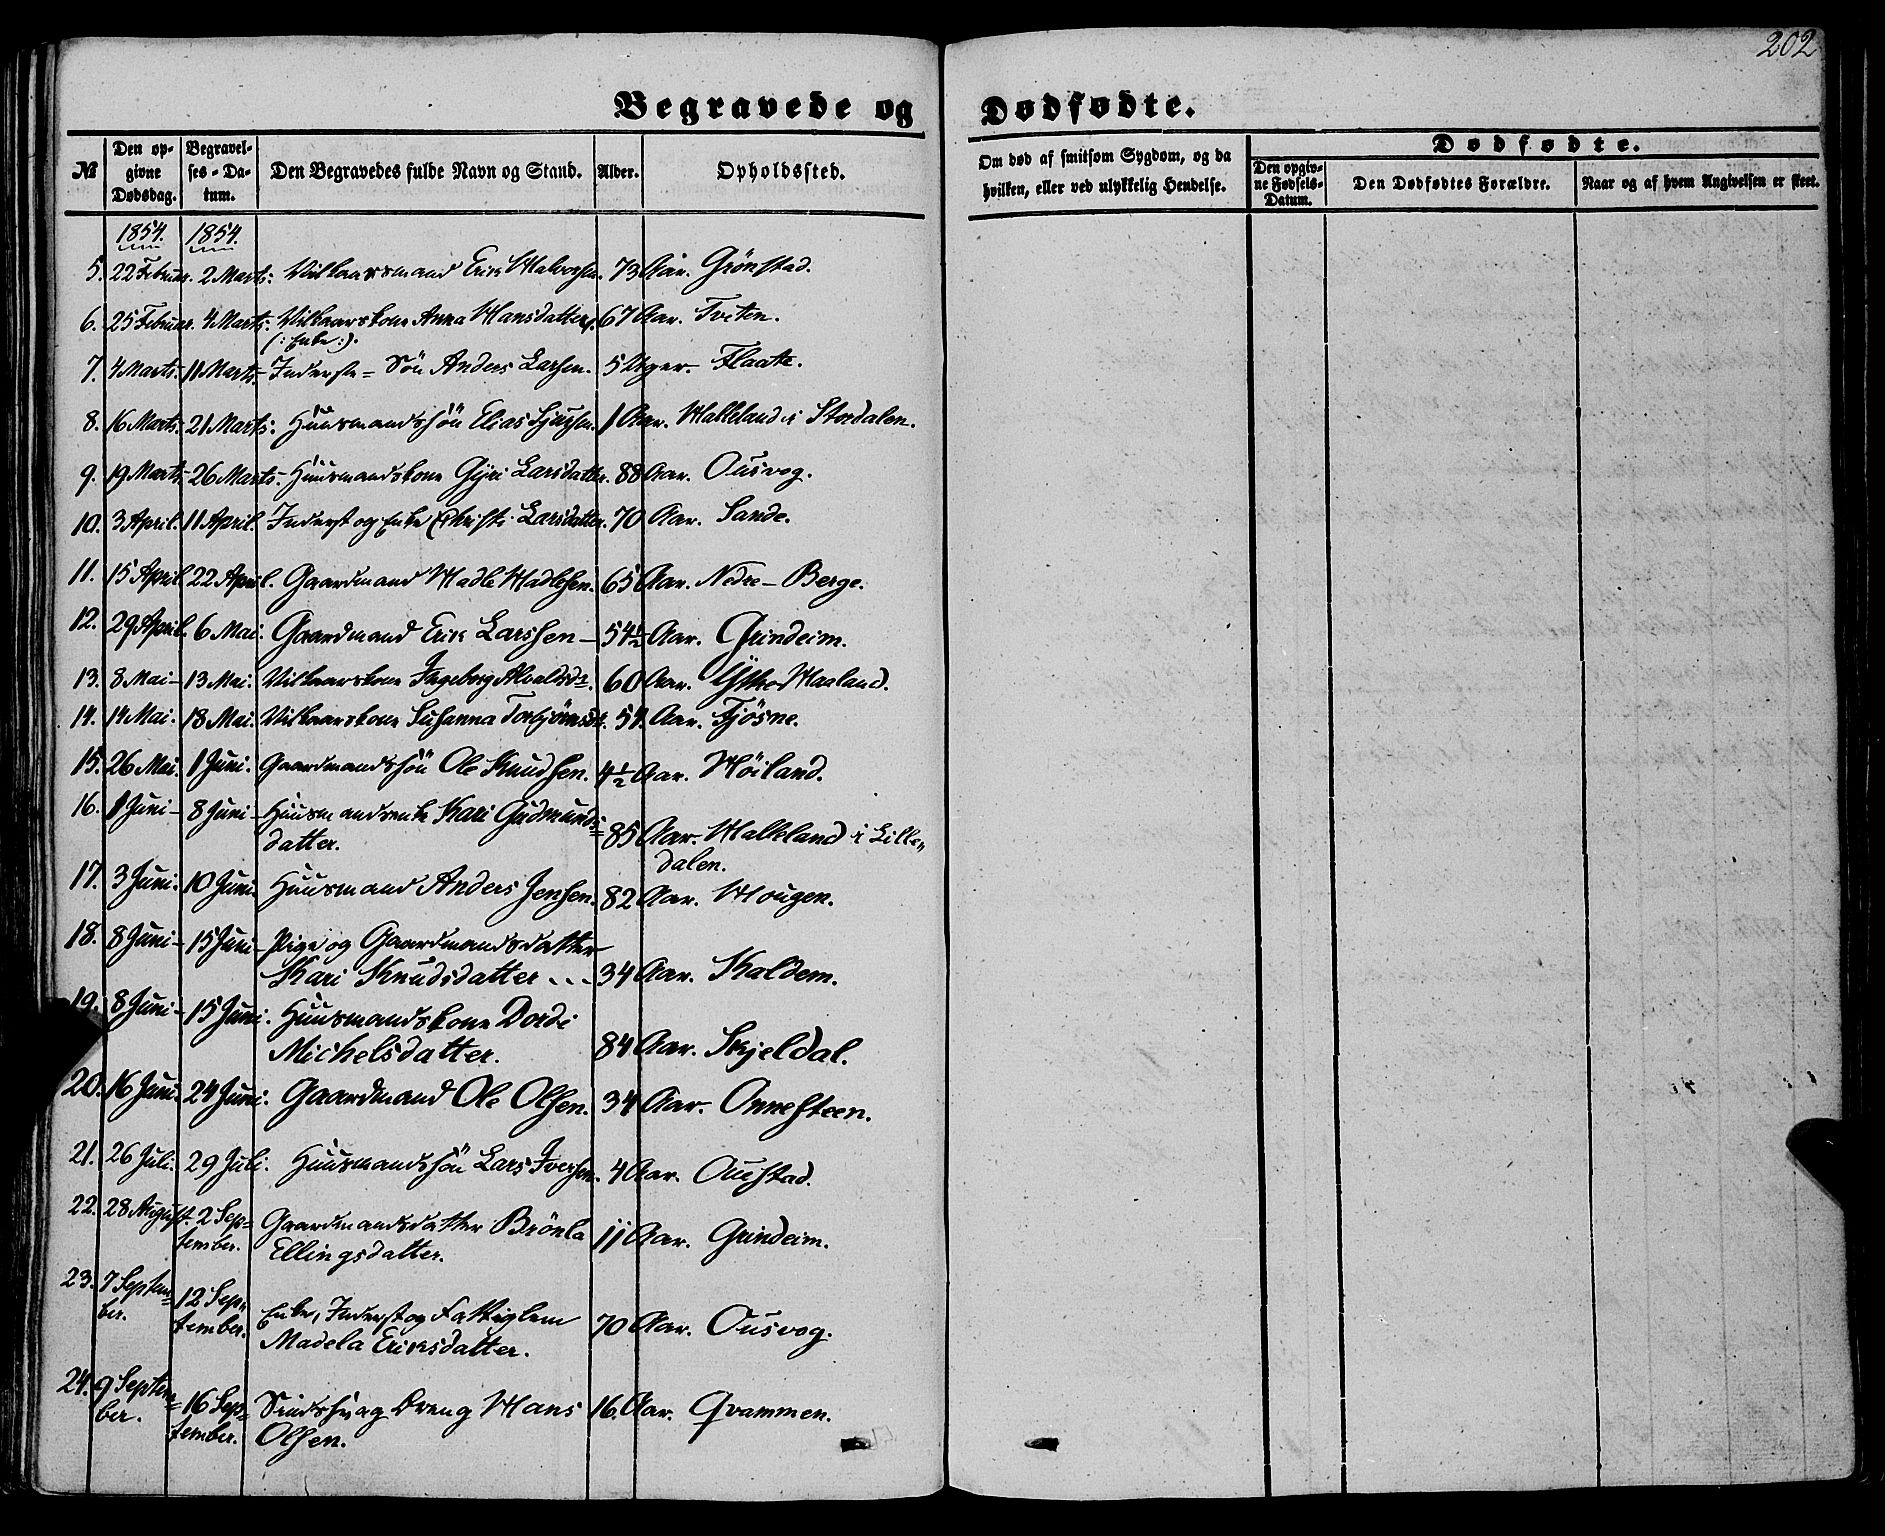 202
Begravede og Dødfødte.
№ Den opgivne Dødsdag. Begravelses-Datum. Den Begravedes fulde Navn og Stand. Alder. Opholdssted. Om død af smitsom Sygdom, og da hvilken, eller ved ulykkelig Hendelse. Dødfødte. Den opgivne Fødsels-Datum. Den Dødfødtes Forældre. Naar og af hvem Angivelsen er skeet.
1854. 1854.
5. 22 Februar. 2 Marts: Vilkaarsmand Erik Halvorsen. 73 Aar. Grönstad.
6. 25 Februar. 4 Marts: Vilkaarskone Anna Hansdatter 67 Aar. Tviten.
(: Enke :).
7. 4 Marts. 11 Marts- Inderste = Sön Anders Larsen. 5 Uger. Flaate.
8. 16 Marts- 21 Marts: Huusmandssön Elias 1 Aar. Halleland i Stordalen.
9. 19 Marts- 26 Marts- Huusmandskone Gyri Larsdatter. 88 Aar. Ousvog.
10. 3 April. 11 April. Inderst og Enke Christi Larsdatter. 70 Aar. Sande.
11. 15 April 22 April. Gaardmand Hadle Hadlesen. 65 Aar. Nedre-Berge.
12. 29 April. 6 Mai. Gaardmand Erik Larssen- 54½ Aar. Grindeim.
13. 8 Mai- 13 Mai. Vilkaarskone Ingeborg 60 Aar. Ytre Haaland.
14. 14 Mai. 18 Mai. Vilkaarskone Susanna Torbjörnsdr. 54. Aar. Fjösne.
15. 26 Mai. 1 Juni. Gaardmandssön Ole Knudsen. 4½ Aar. Höiland.
16. 1 Juni- 8 Juni- Huusmandsenke Kari Gudmunds=
datter. 85 Aar. Halleland i Lille„
dalen.
17. 3 Juni. 10 Juni. Huusmand Anders Jensen. 82 Aar. Hougen.
18. 8 Juni- 15 Juni- Pige og Gaardmandsdatter
Kari Knudsdatter - - - 34 Aar. Kaldem.
19. 8 Juni- 15 Juni. Huusmandskone Dordi
Michelsdatter. 84 Aar. Skjeldal.
20. 16 Juni. 24 Juni. Gaardmand Ole Olsen. 34 Aar. Onnesteen.
21. 26 Juli. 29 Juli. Huusmandssön Lars Iversen. 4 Aar. Oustad.
22. 28 August. 2 Sep=
tember. Gaardmandsdatter Brönla
Ellingsdatter. 11 Aar. Grindeim.
23. 7 Septem=
ber. 12 Sep„
tember. Enke, Inderst og Fattiglem
Madela Eriksdatter. 70 Aar. Ousvog.
24. 9 Septem=
ber. 16 Sep=
tember. Sindssvag Dreng Hans
Olsen. 16. Aar. Qvammen.